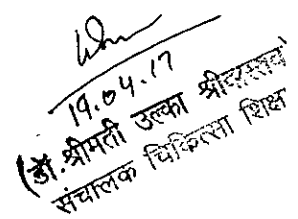 19.04.17
(डॉ. श्रीमती उल्का श्रीवास्तव
संचालक चिकित्सा शिक्षा